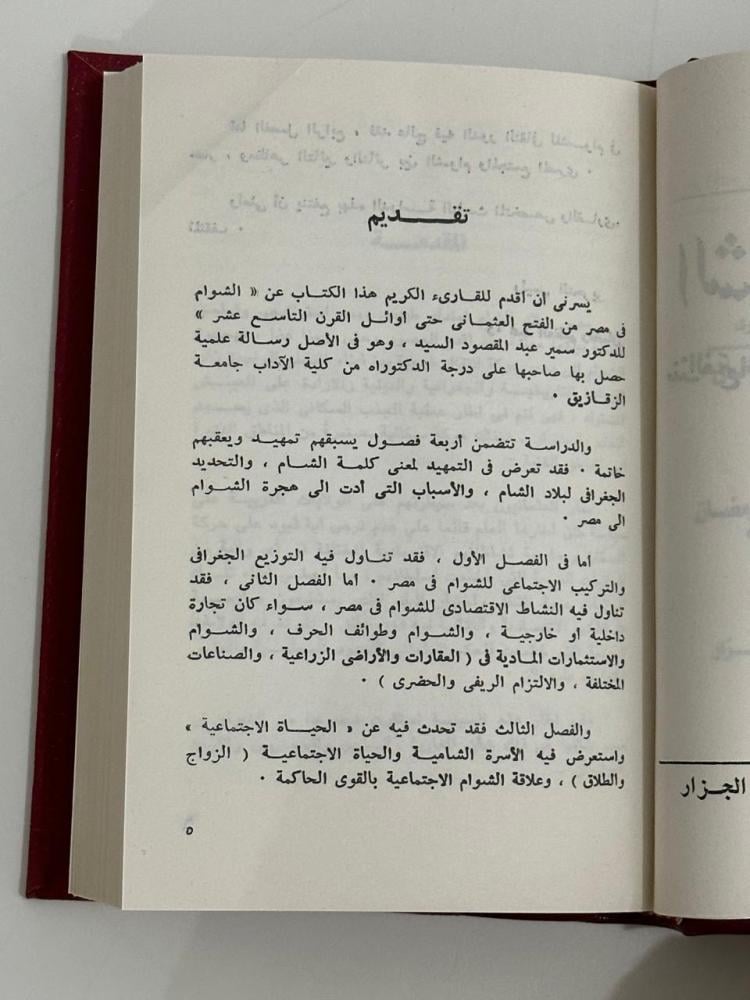 تقديم
يسرنى أن أقدم للقارىء الكريم هذا الكتاب عن « الشوام
فى مصر من الفتح العثمانى حتى أوائل القرن التاسع عشر »
للدكتور سمير عبد المقصود السيد ، وهو فى الأصل رسالة علمية
حصل بها صاحبها على درجة الدكتوراه من كلية الآداب جامعة
الزقازيق ٠
والدراسة تتضمن أربعة فصول يسبقهم تمهيد ويعقبهم
خاتمة ٠ فقد تعرض فى التمهيد لمعنى كلمة الشام ، والتحديد
الجغرافى لبلاد الشام ، والأسباب التى أدت الى هجرة الشوام
الى مصر ٠
أما فى الفصل الأول ، فقد تناول فيه التوزيع الجغرافى
والتركيب الاجتماعى للشوام فى مصر ٠ أما الفصل الثانى ، فقد
تناول فيه النشاط الاقتصادى للشوام فى مصر ، سواء كان تجارة
داخلية أو خارجية ، والشوام وطوائف الحرف ، والشوام
والاستثمارات المادية فى ( العقارات والأراضى الزراعية ، والصناعات
المختلفة ، والالتزام الريفى والحضرى ) ٠
والفصل الثالث فقد تحدث فيه عن « الحياة الاجتماعية »
واستعرض فيه الأسرة الشامية والحياة الاجتماعية ( الزواج
والطلاق ) ، وعلاقة الشوام الاجتماعية بالقوى الحاكمة ٠
٥
الجزار